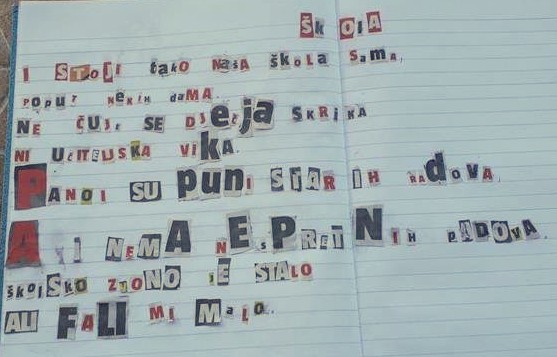 ŠKOlA
I STOJI tako NAŠA šKOLA Sama,
POPUT NEKIH DAMA.
NE ČUJE SE DJEČJA SKRIKA
NI UČITELJSKA VIKA.
PANOI SU PUNI STARIH RADOVA,
A I NEMA NESPRETNIH PADOVA.
šKOlSKO ZVONO JE STALO
ALI FALI MI MaLO.